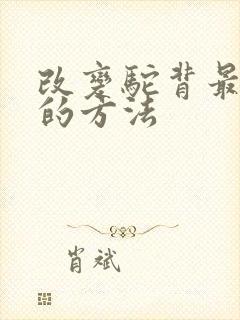 改变驼背最
的方法
肖斌